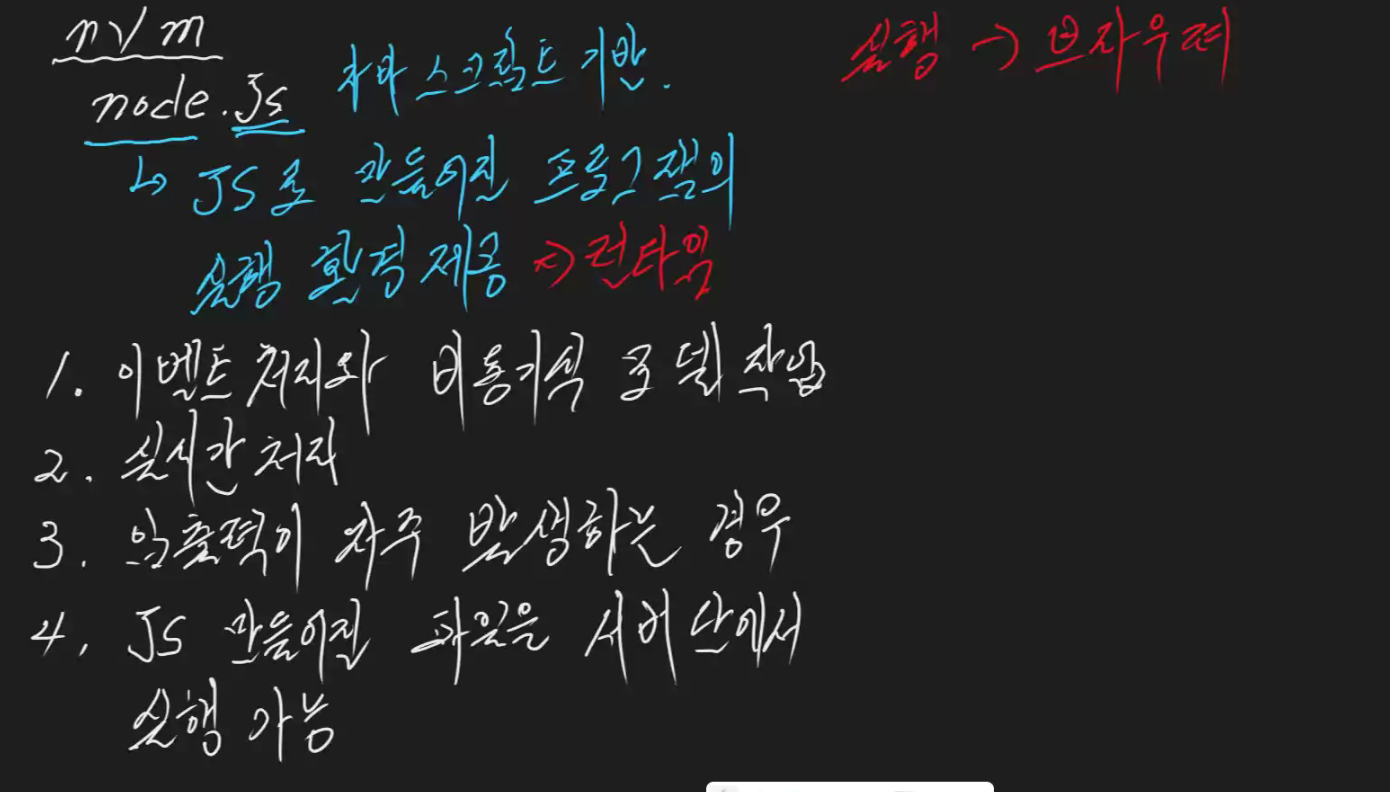 nvm
실행 → 브라우져
node.js 자바스크립트 기반.
↳ JS로 만들어진 프로그램의
실행 환경 제공 => 런타임
1. 이벤트 처리와 비동기식 모델 작업
2. 실시간 처리
3. 입출력이 자주 발생하는 경우
4. JS 만들어진 파일을 서버단에서
실행 가능